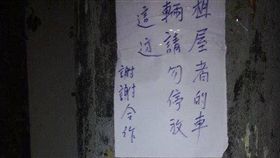 租屋者的車
輛請勿停放
這边
謝謝合作